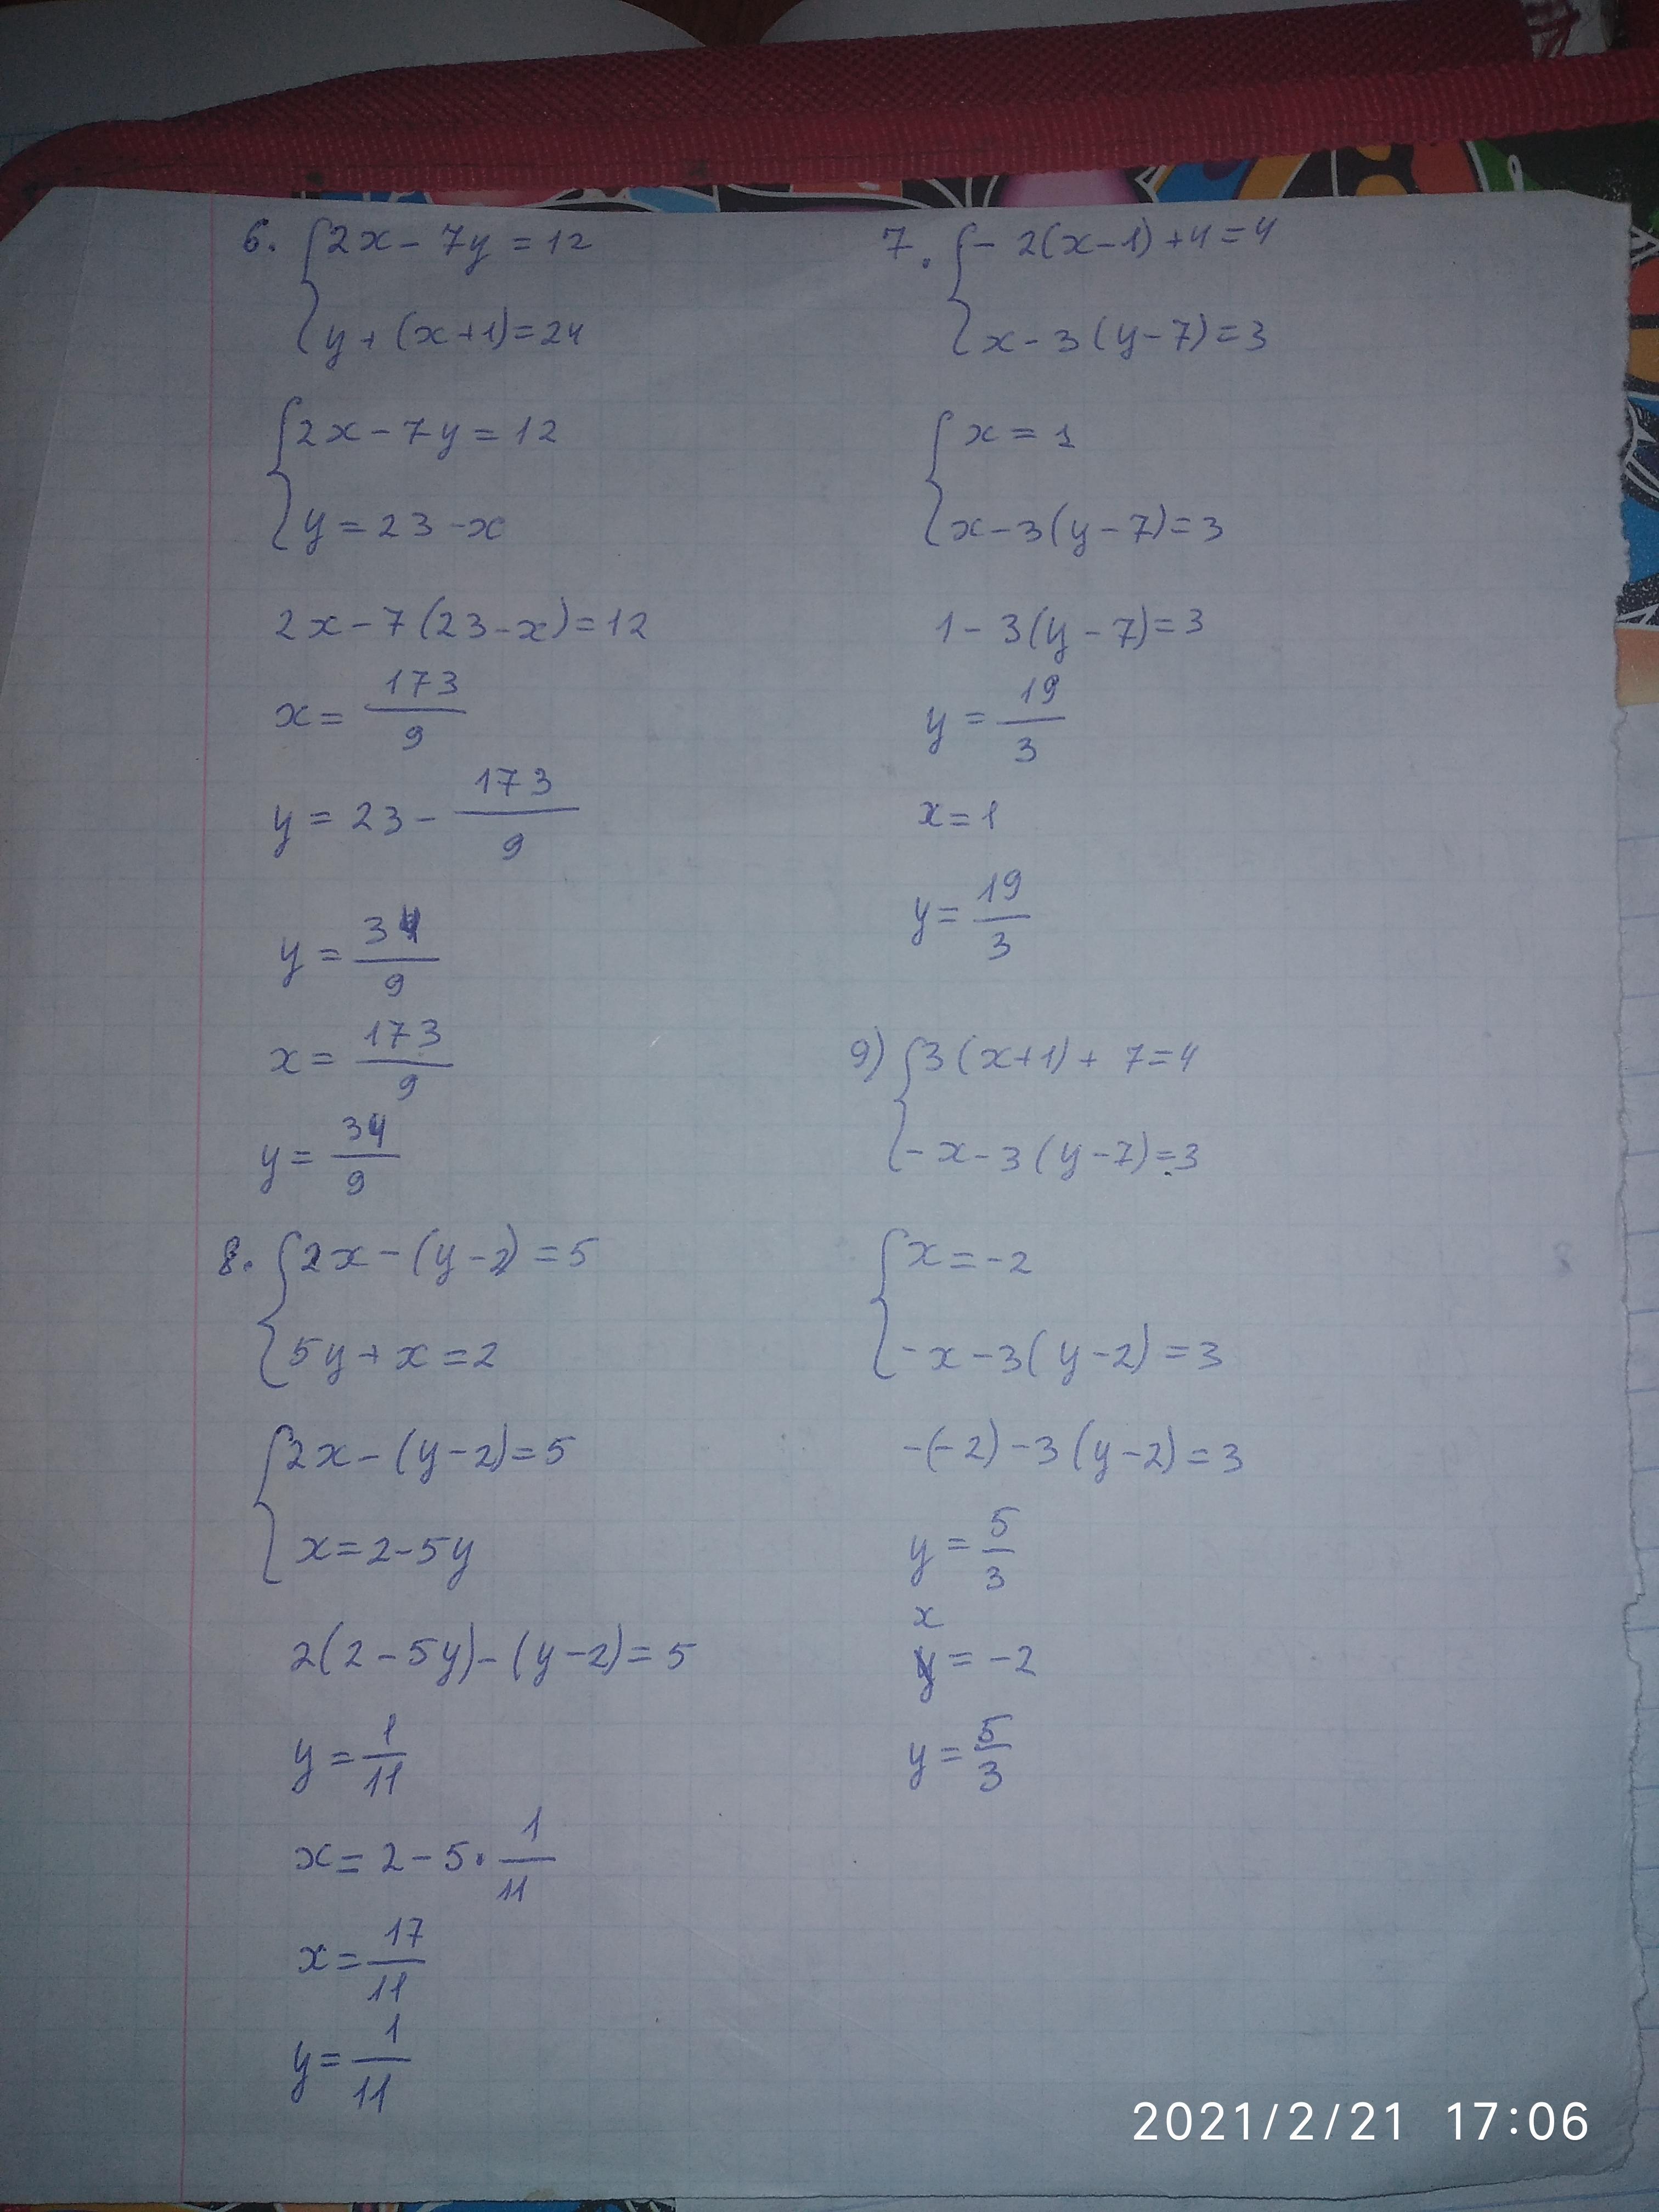 6. { 2x - 7y = 12
y + (x+1) = 24
{ 2x - 7y = 12
y = 23 - x
2x - 7(23 - x) = 12
x = 173/9
y = 23 - 173/9
y = 34/9
x = 173/9
y = 34/9
8. { 2x - (y - 2) = 5
5y + x = 2
{ 2x - (y - 2) = 5
x = 2 - 5y
2(2 - 5y) - (y - 2) = 5
y = 1/11
x = 2 - 5 · 1/11
x = 17/11
y = 1/11
7. { - 2(x - 1) + 4 = 4
x - 3(y - 7) = 3
{ x = 1
x - 3(y - 7) = 3
1 - 3(y - 7) = 3
y = 19/3
x = 1
y = 19/3
9) { 3(x+1) + 7 = 4
- x - 3(y - 7) = 3
{ x = -2
- x - 3(y - 2) = 3
-(-2) - 3(y - 2) = 3
y = 5/3
x = -2
y = 5/3
2021/2/21 17:06